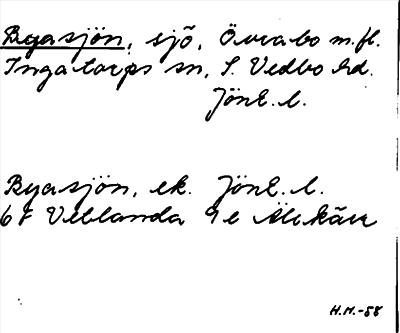 Byasjön, sjö, Övrabo m.fl.
Ingatorps sn, S. Vedbo hd.
Jönk. l.
Byasjön, ek. Jönk. l.
6F Vetlanda 9e Älekärr
H.M.-58